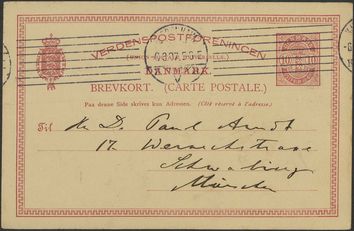 VERDENSPOSTFORENINGEN
(UNION POSTALE UNIVERSELLE)
DANMARK
BREVKORT. (CARTE POSTALE.)
Paa denne Side skrives kun Adressen. (Côté réservé à l'adresse.)
10 10
Til H. D. Paul Arndt
17. Werneckstrasse
Schwabing
München